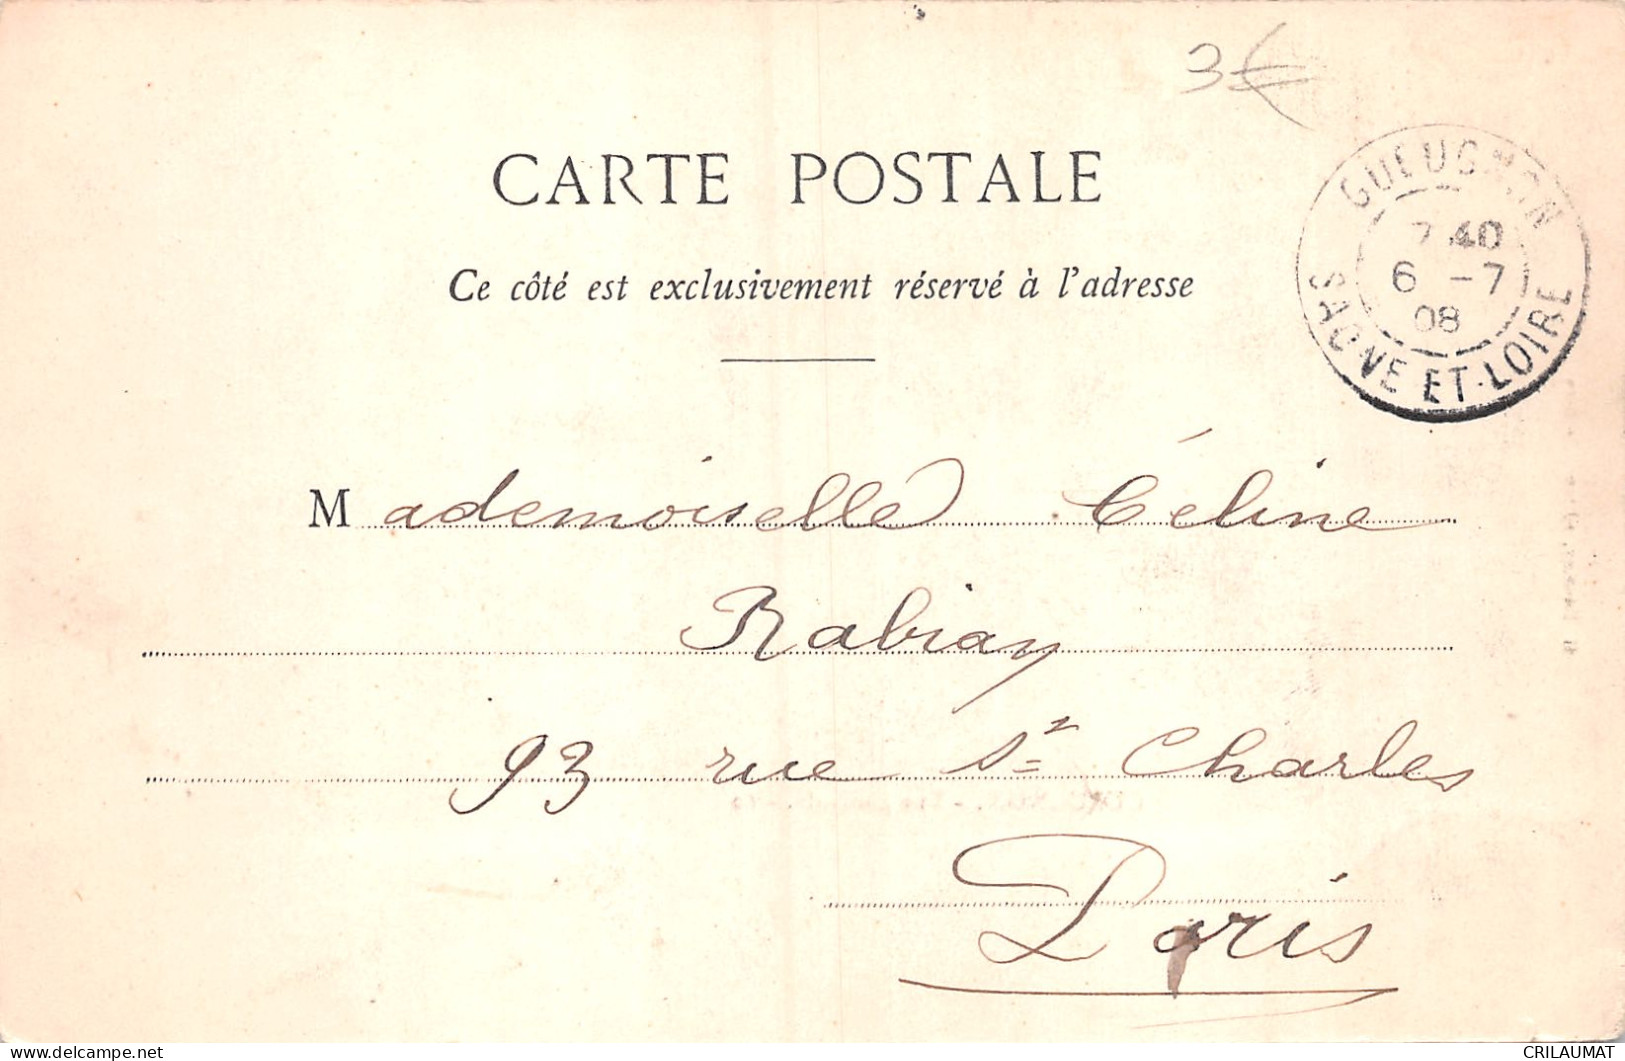 3€
CARTE POSTALE
GUEUGNON
7 40
6 -7
08
SAONE-ET-LOIRE
Ce côté est exclusivement réservé à l'adresse
Mademoiselle Céline
Rabiay
93 rue St Charles
Paris
CRILAUMAT